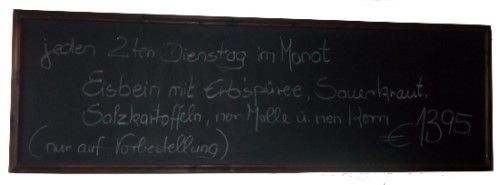 jeden 2ten Dienstag im Monat
Eisbein mit Erbspüree, Sauerkraut,
Salzkartoffeln, ner Molle u. nen Korn
€ 13,95
(nur auf Vorbestellung)